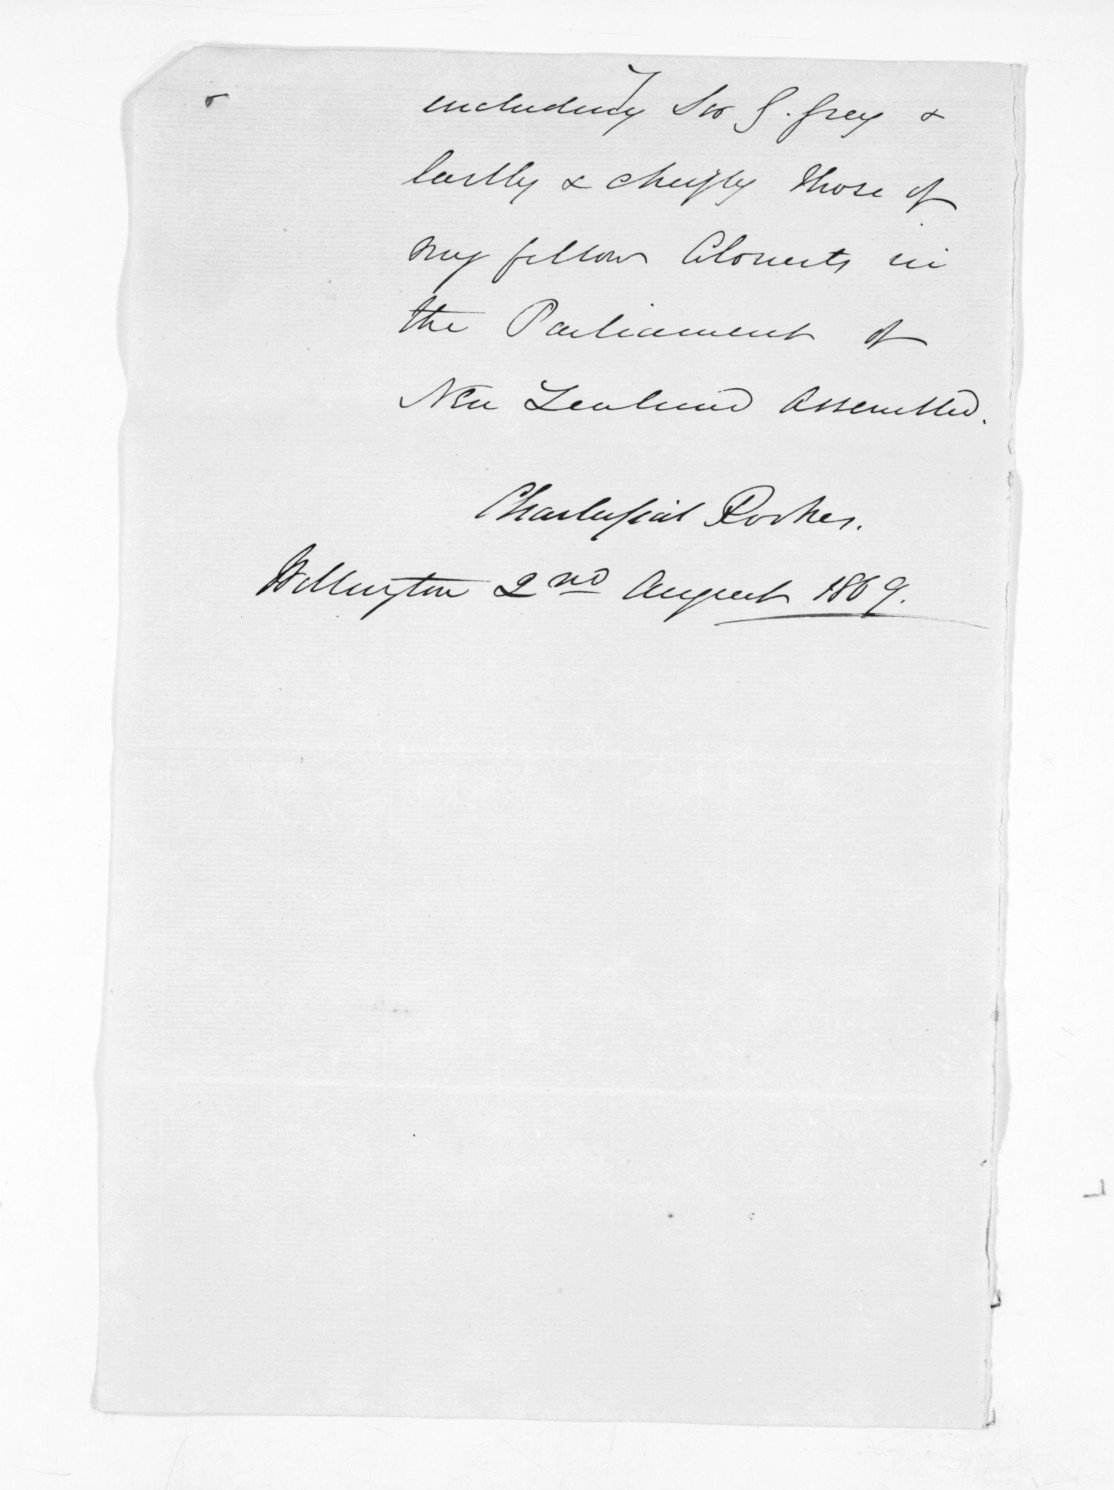 including Sir G. Grey &
lastly & chiefly those of
my fellow Colonists in
the Parliament of
New Zealand Assembled.
Charles Rookes.
Wellington 2nd August 1869.